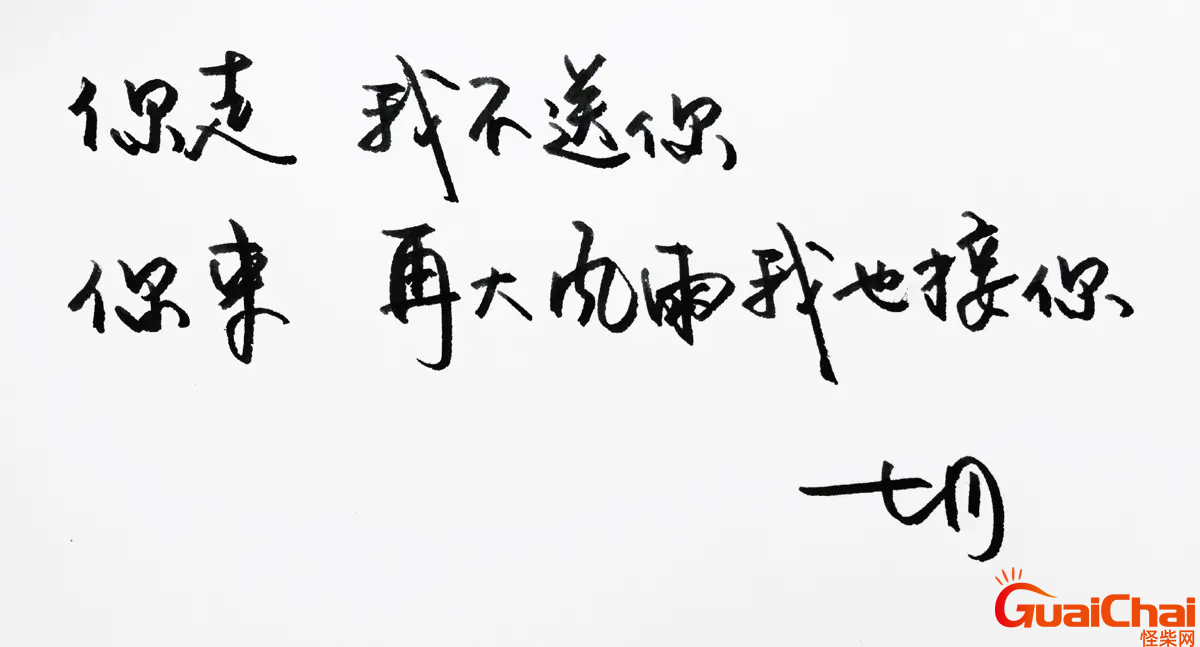 你走 我不送你
你來 再大风雨我也接你
七月
GuaiChai
怪柴网